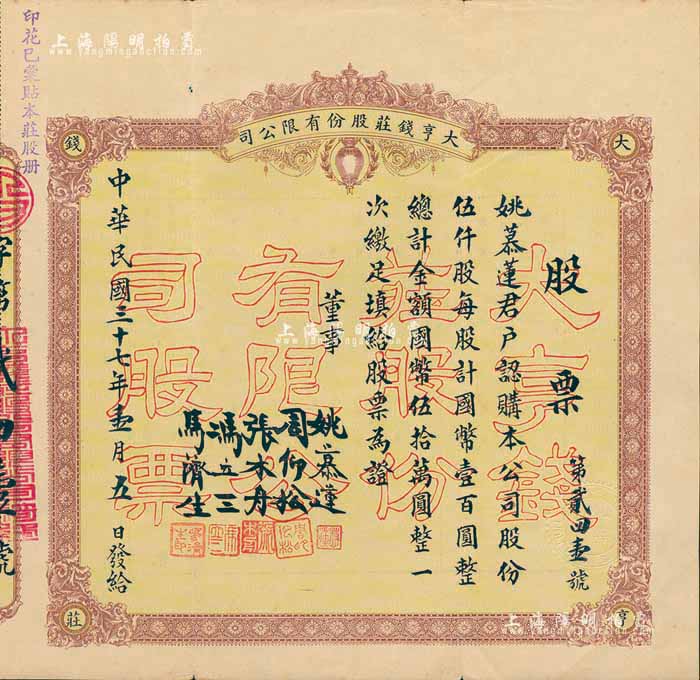 大亨錢莊股份有限公司
大
亨
錢
莊
大亨錢
莊股份
有限公
司股票
股票
第貳四壹號
姚慕蓮君戶認購本公司股份
伍仟股每股計國幣壹百圓整
總計金額國幣伍拾萬圓整一
次繳足填給股票為證
董事
姚慕蓮
周仰松
張木舟
馮立三
馬濟生
中華民國三十七年壹月五日發給
印花已彙貼本莊股册
字第貳四壹號
上海陽明拍賣
www.yangmingauction.com
上海陽明拍賣
www.yangmingauction.com
上海陽明拍賣
www.yangmingauction.com